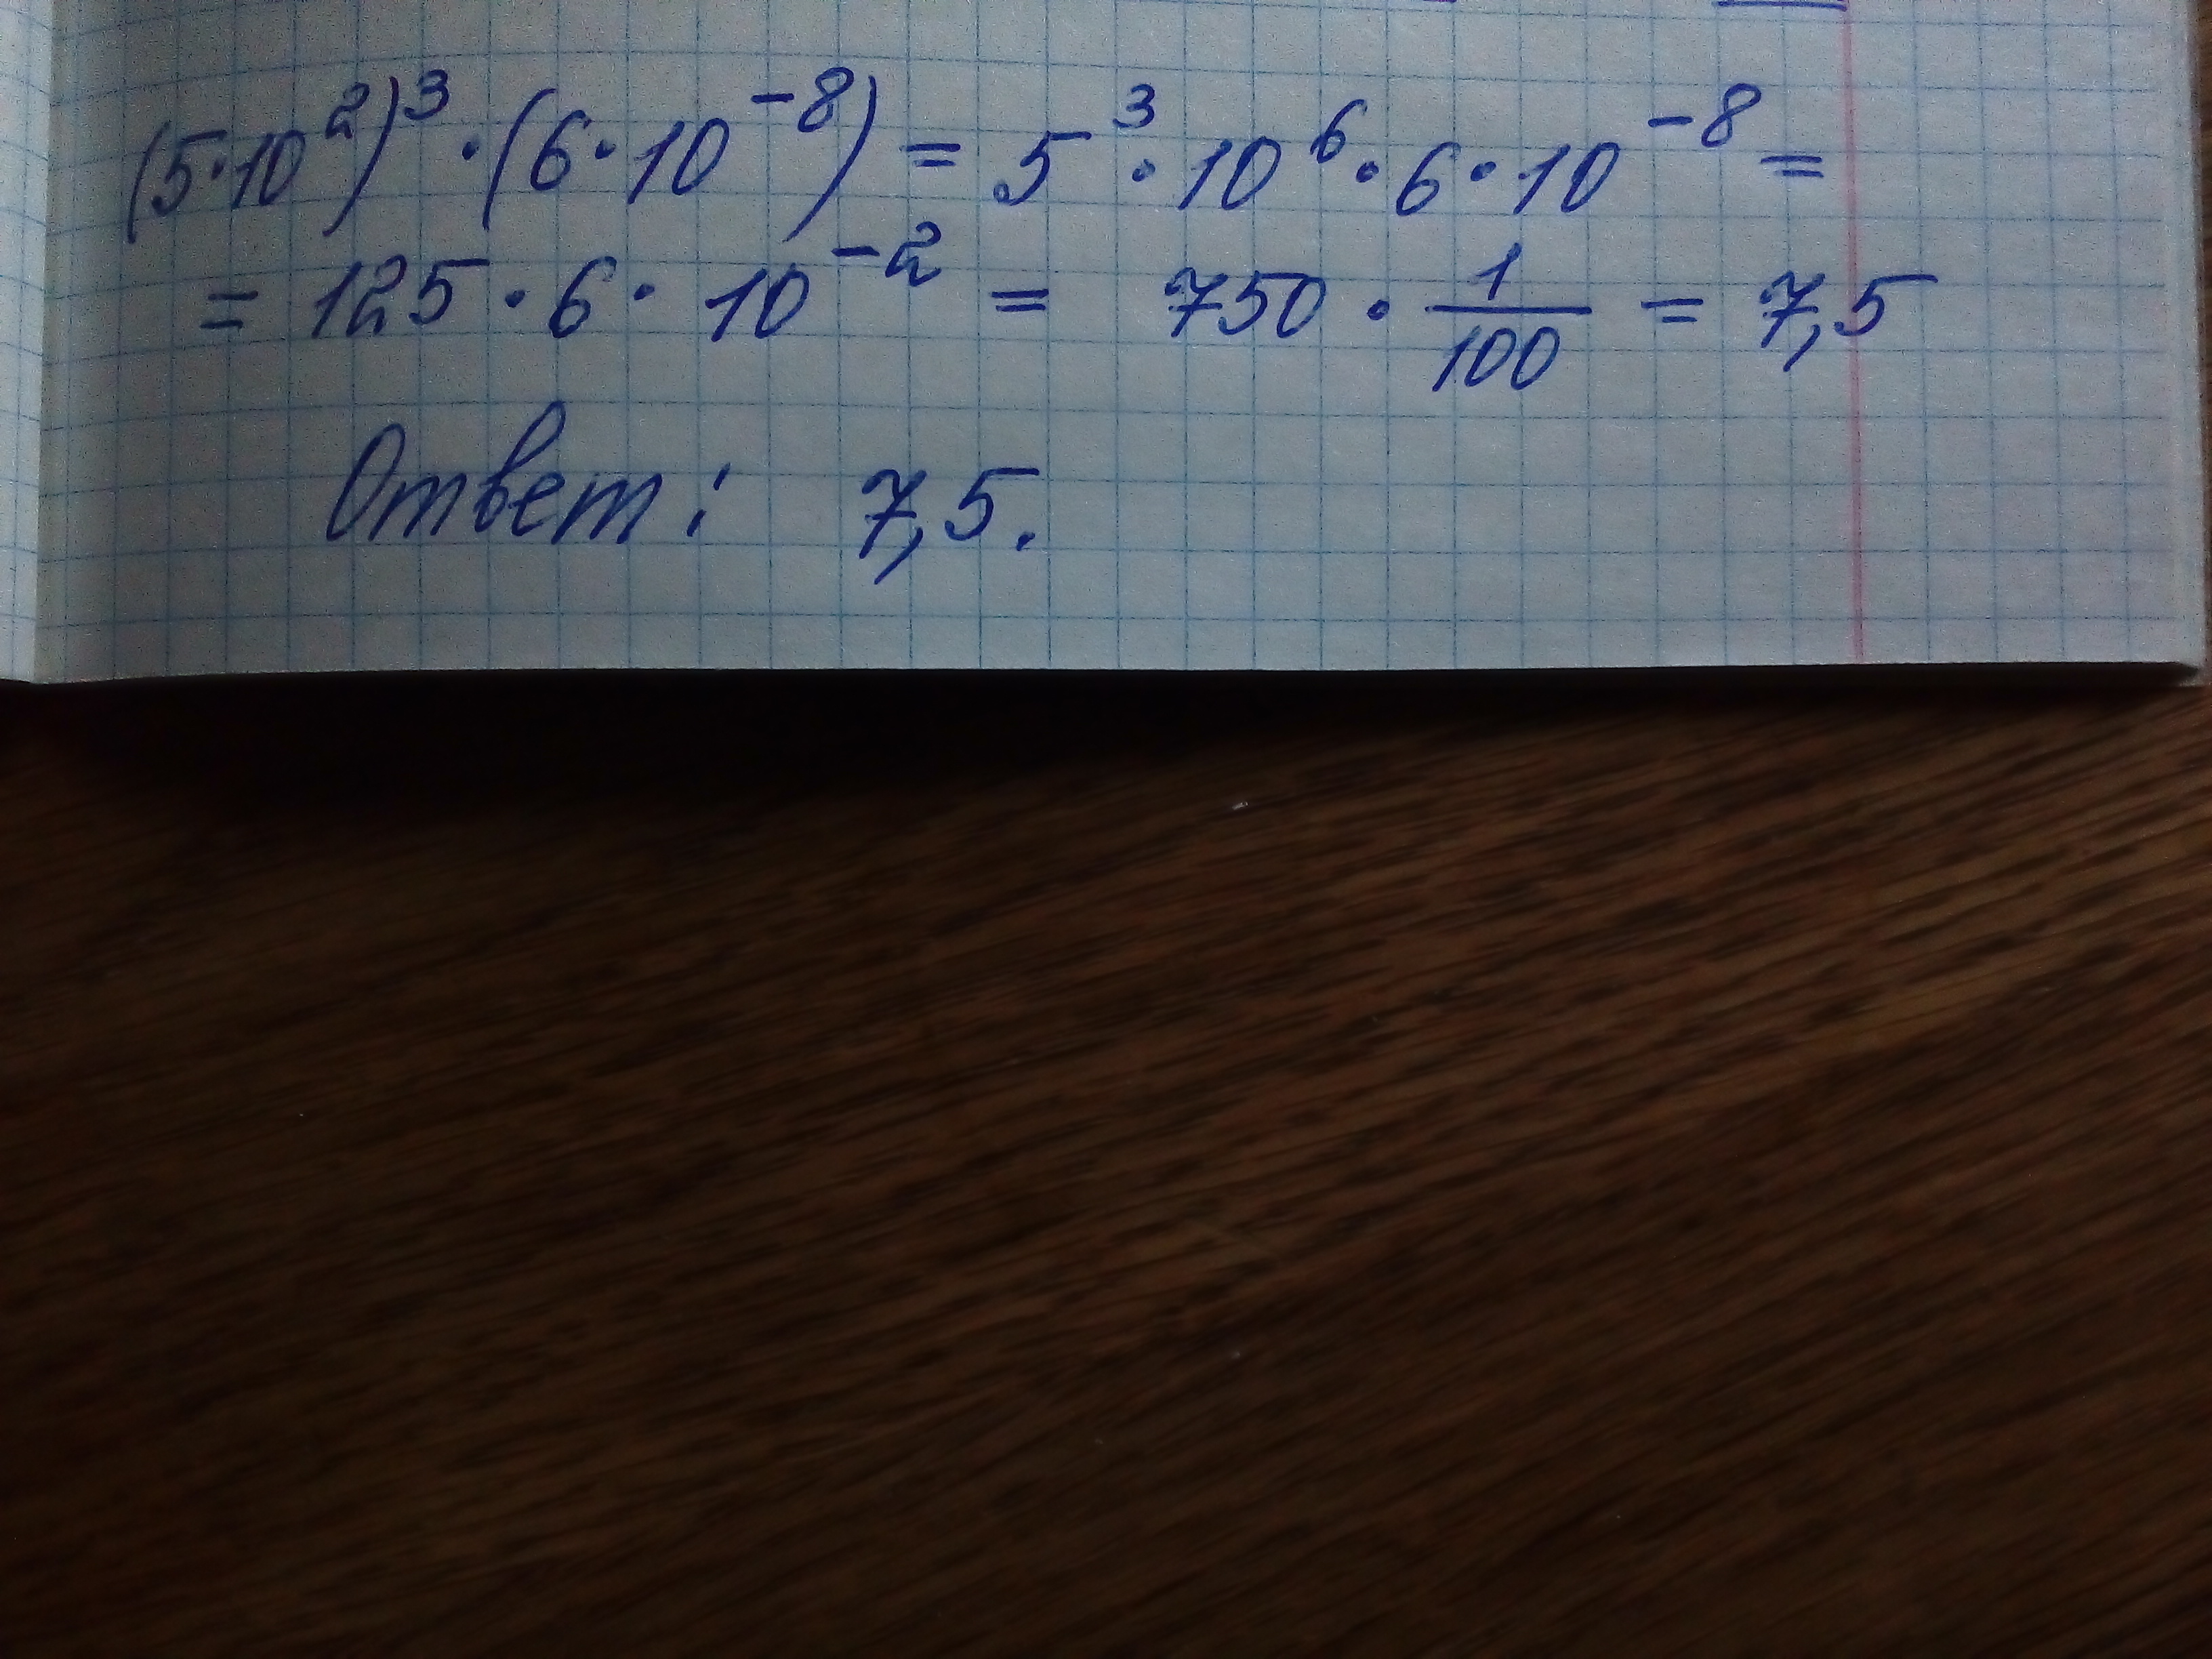 (5·10²)³·(6·10⁻⁸) = 5³·10⁶·6·10⁻⁸ =
= 125·6·10⁻² = 750·1/100 = 7,5
Ответ: 7,5.